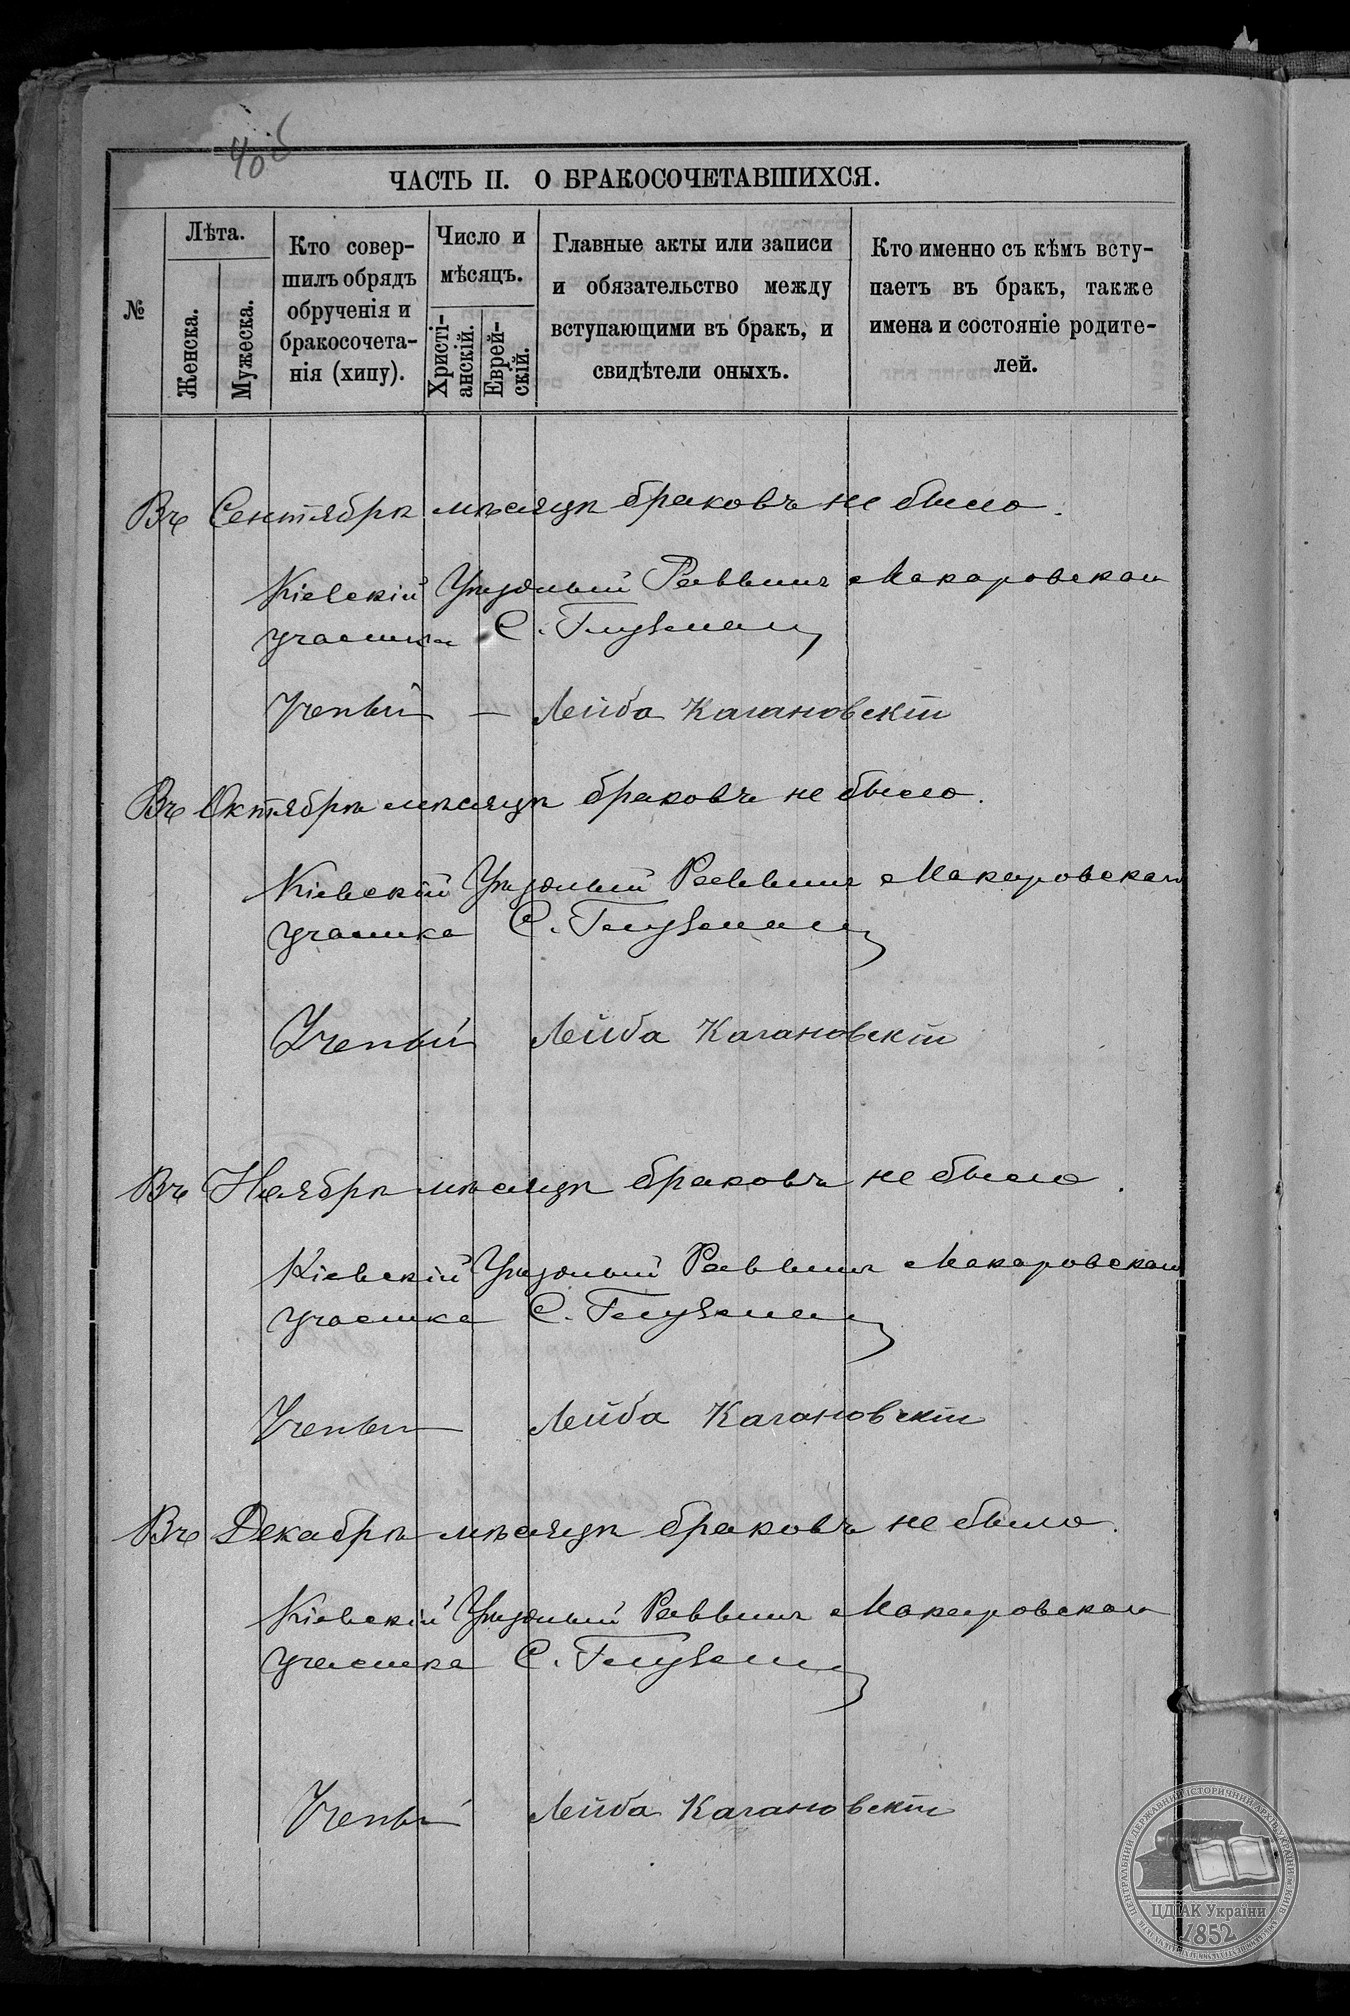 ЧАСТЬ II. О БРАКОСОЧЕТАВШИХСЯ.
№
Лѣта.
Женска.
Мужеска.
Кто совер-
шилъ обрядъ
обрученія и
бракосочета-
нія (хипу).
Число и
мѣсяцъ.
Христі-
анскій.
Еврей-
скій.
Главные акты или записи
и обязательство между
вступающими въ бракъ, и
свидѣтели оныхъ.
Кто именно съ кѣмъ всту-
паетъ въ бракъ, также
имена и состояніе родите-
лей.
Въ Сентябрѣ мѣсяцѣ браковъ не было.
Кіевскій Уѣздный Раввинъ Макаровскаго
участка С. Глузманъ
Ученый — Лейба Кагановскій
Въ Октябрѣ мѣсяцѣ браковъ не было.
Кіевскій Уѣздный Раввинъ Макаровскаго
участка С. Глузманъ
Ученый Лейба Кагановскій
Въ Ноябрѣ мѣсяцѣ браковъ не было.
Кіевскій Уѣздный Раввинъ Макаровскаго
участка С. Глузманъ
Ученый Лейба Кагановскій
Въ Декабрѣ мѣсяцѣ браковъ не было.
Кіевскій Уѣздный Раввинъ Макаровскаго
участка С. Глузманъ
Ученый Лейба Кагановскій
ЦЕНТРАЛЬНИЙ ДЕРЖАВНИЙ ІСТОРИЧНИЙ АРХІВ УКРАЇНИ, М. КИЇВ
ЦДІАК України
1852